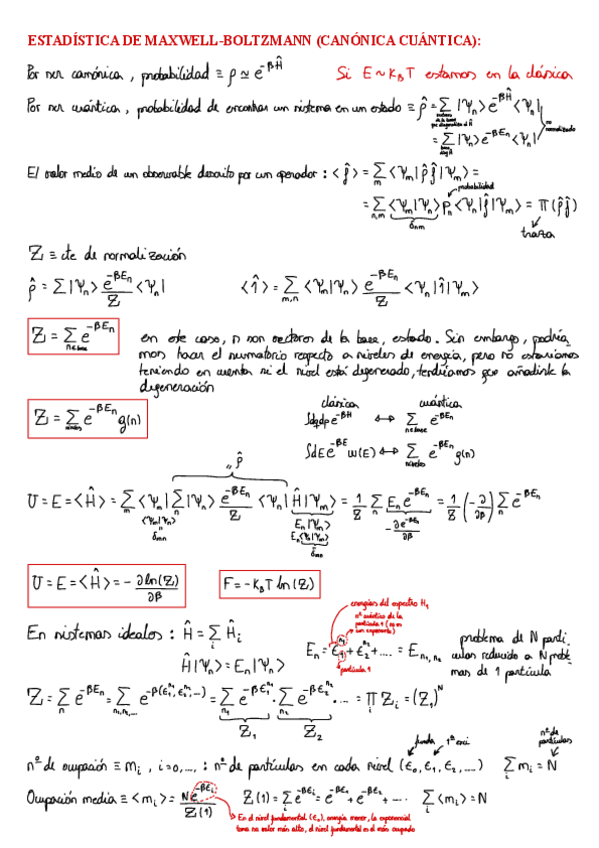 ESTADÍSTICA DE MAXWELL-BOLTZMANN (CANÓNICA CUÁNTICA):
Por ser canónica, probabilidad ≡ ρ ≃ e^{-βĤ}    Si E ~ K_B T estamos en la clásica
Por ser cuántica, probabilidad de encontrar un sistema en un estado ≡ ρ̂ = Σ |Ψn> e^{-βĤ} <Ψn|
= Σ |Ψn> e^{-βEn} <Ψn|
no normalizado
El valor medio de un observable descrito por un operador: <ĵ> = Σ_m <Ψm|ρ̂ĵ|Ψm> =
probabilidad
= Σ_{n,m} <Ψm|Ψn> Pn <Ψn|ĵ|Ψm> = Π(ρ̂ĵ)
δnm    traza
Z ≡ cte de normalización
ρ̂ = Σ|Ψn> e^{-βEn}/Z <Ψn|    <1̂> = Σ_{m,n} <Ψm|Ψn> e^{-βEn}/Z <Ψn|1̂|Ψm>
Z = Σ_{n∈base} e^{-βEn}    en este caso, n son vectores de la base, estado. Sin embargo, podría
mos hacer el sumatorio respecto a niveles de energía, pero no estaríamos
teniendo en cuenta si el nivel está degenerado, tendríamos que añadirle la
degeneración
clásica    cuántica
Z = Σ_{niveles} e^{-βEn} g(n)    ∫dqdp e^{-βH} ↔ Σ_{n∈base} e^{-βEn}
∫dE e^{-βE} ω(E) ↔ Σ_{niveles} e^{-βEn} g(n)
"ρ̂
U = E = <Ĥ> = Σ_m <Ψm| Σ_n |Ψn> e^{-βEn}/Z <Ψn| Ĥ|Ψm> = 1/Z Σ_n En e^{-βEn} = 1/Z (-∂/∂β) Σ_n e^{-βEn}
<Ψm|Ψn>    En|Ψm>    -∂e^{-βEn}/∂β
δmn    En<Ψn|Ψm>
δnm
U = E = <Ĥ> = - ∂ln(Z)/∂β    F = -K_B T ln(Z)
energías del espectro H1
nº cuántico de la partícula 1 (no es un exponente)
En sistemas ideales: Ĥ = Σ_i Ĥi    En = ϵ1^{n1} + ϵ2^{n2} + .... = E_{n1,n2}    problema de N partí
culas reducido a N proble
Ĥ|Ψn> = En|Ψn>    partícula 1    mas de 1 partícula
Z = Σ_n e^{-βEn} = Σ_{n1,n2,...} e^{-β(ϵ1^{n1},ϵ2^{n2},...)} = Σ_{n1} e^{-βϵ1^{n1}} · Σ_{n2} e^{-βϵ2^{n2}} · ... = Π_i Zi = (Z1)^N
Z1    Z2
funda    1ª exci    nº de partículas
nº de ocupación ≡ mi, i=0,....: nº de partículas en cada nivel (ϵ0, ϵ1, ϵ2, ....)    Σ mi = N
Ocupación media ≡ <mi> = N e^{-βϵi}/Z(1)    Z(1) = Σ_i e^{-βϵi} = e^{-βϵ0} + e^{-βϵ1} + ....    Σ_i <mi> = N
En el nivel fundamental (ϵ0), energía menor, la exponencial
toma un valor más alto, el nivel fundamental es el más ocupado